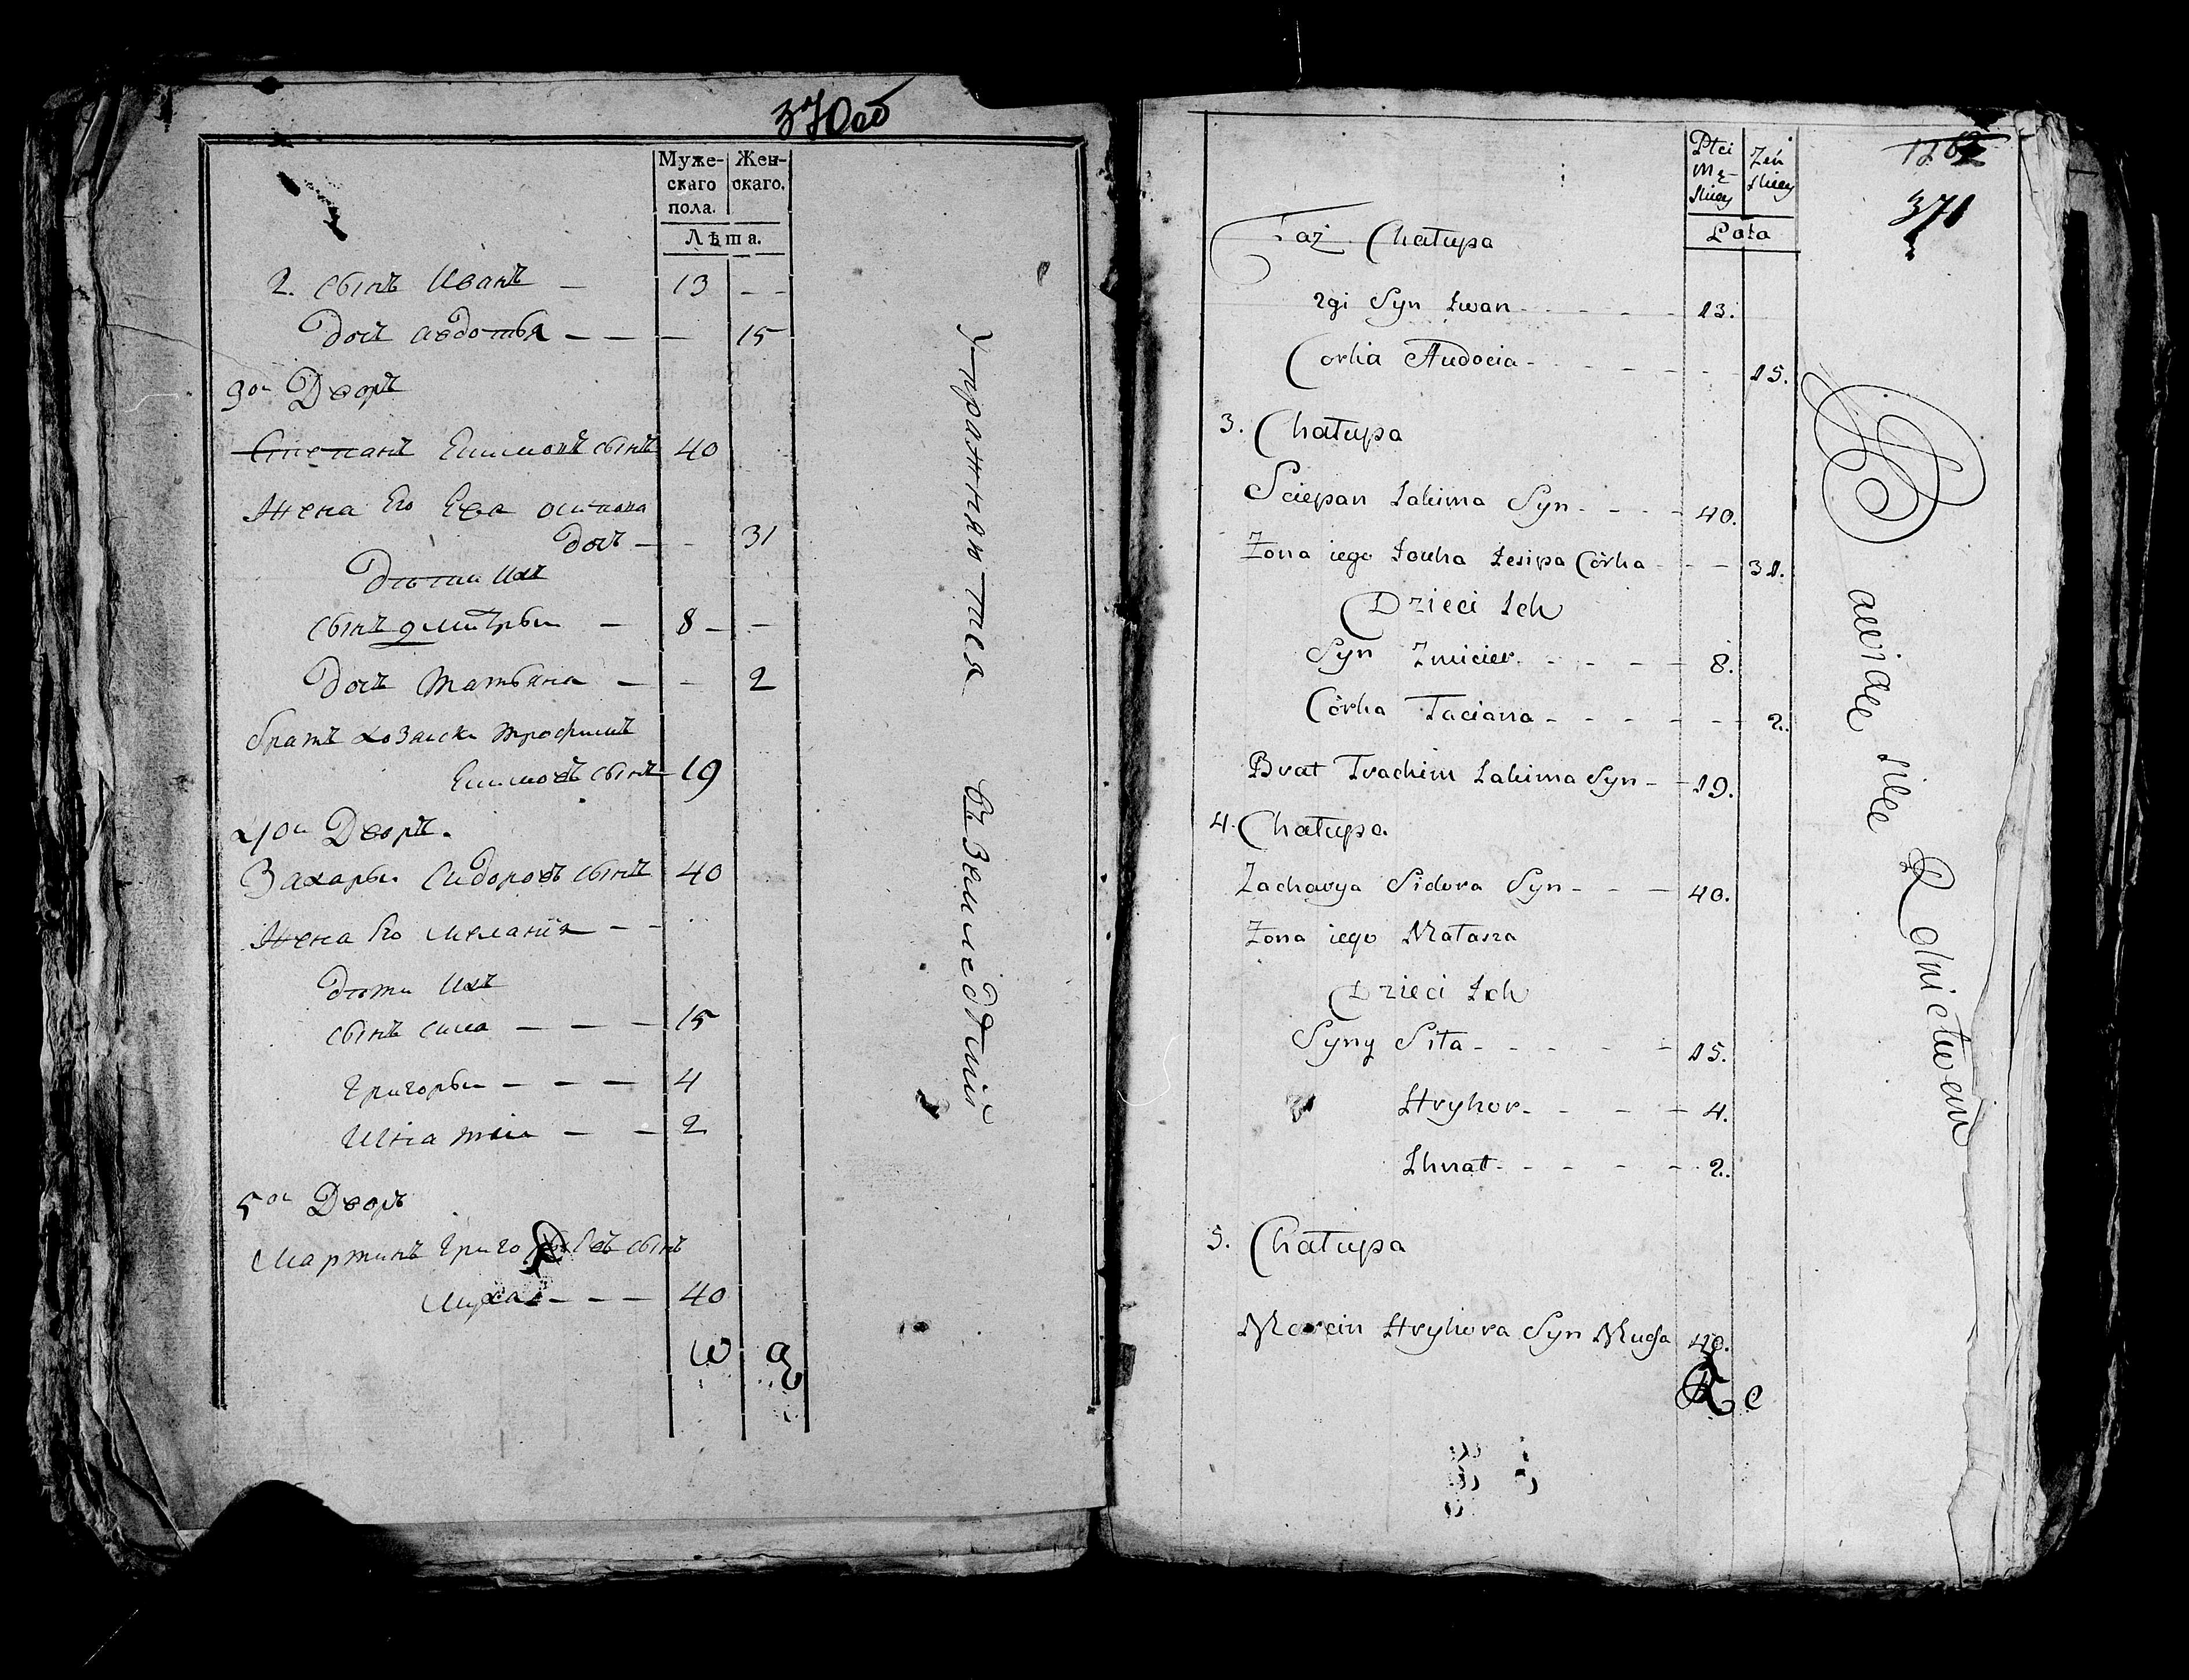 370об
Муже- Жен-
скаго скаго.
пола.
Лѣта.
2. сынъ Иванъ — 13 — —
дочь авдотья — — — 15
3ои Дворъ
Степанъ Екимовъ сынъ 40
Жена Его Ева осипова
дочь — - 31
Дѣти Ихъ
сынъ дмитрьи — 8 — —
дочь татьяна — - 2
братъ хозаиски трофимъ
Екимовъ сынъ 19
4ои Дворъ.
Захарьи Сидоровъ сынъ 40
Жена Его меланія — -
дѣти Ихъ
сынъ сила — — — 15
григорьи — — — 4
Игнатеи — — 2
5ои Дворъ
Мартинъ григорьевъ сынъ
Муха — — — 40
Упражняются въ земледѣлии
1262
371
Płci Żeń
Mę- skiey
skiey
Lata
Taż Chałupa
2gi Syn Iwan - - - - - 13.
Corka Audocia - - - - - - 15.
3. Chałupa
Sciepan Iakima Syn - - - - 40.
Zona iego Iouka Iesipa Córka - - - 31.
Dzieci Ich
Syn Zmicier - - - - - 8.
Córka Taciana - - - - - - 2.
Brat Trachim Iakima Syn - - 19.
4. Chałupa
Zacharya Sidora Syn - - - 40.
Zona iego Małasza
Dzieci Ich
Syny Siła - - - - - 15.
Hryhor - - - - 4.
Ihnat - - - - - 2.
5. Chałupa
Marcin Hryhora Syn Mucha 40.
Bawiące się Rolnictwem